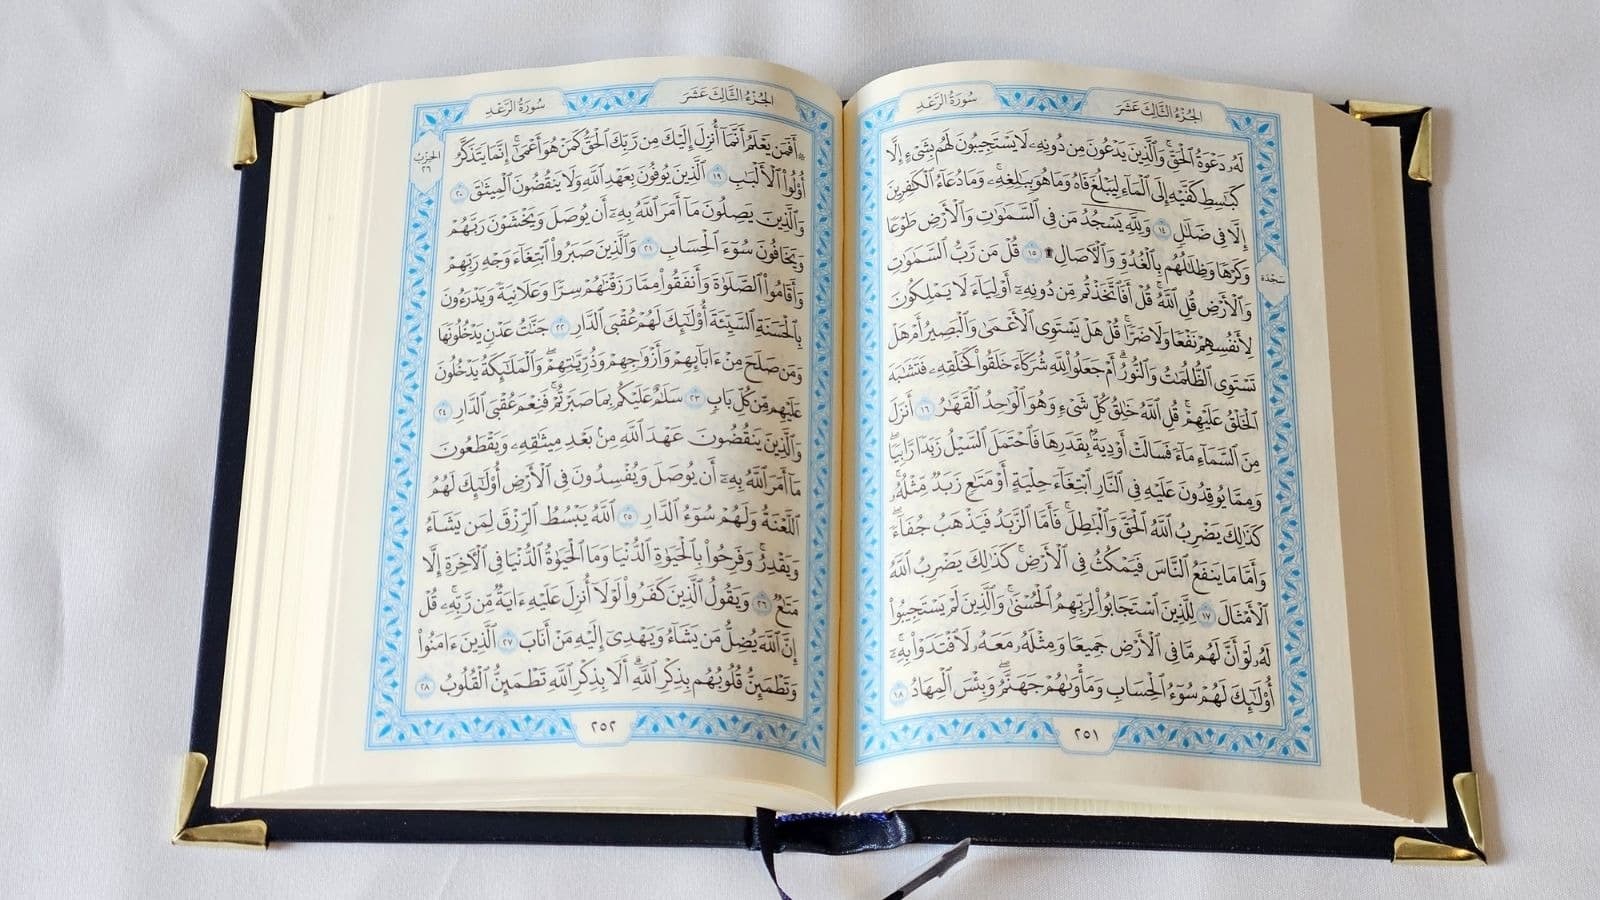 الجُزْءُ الثَّالِثَ عَشَرَ
سُورَةُ الرَّعْدِ
لَهُۥ دَعْوَةُ ٱلْحَقِّۖ وَٱلَّذِينَ يَدْعُونَ مِن دُونِهِۦ لَا يَسْتَجِيبُونَ لَهُم بِشَىْءٍ إِلَّا
كَبَـٰسِطِ كَفَّيْهِ إِلَى ٱلْمَآءِ لِيَبْلُغَ فَاهُ وَمَا هُوَ بِبَـٰلِغِهِۦۚ وَمَا دُعَآءُ ٱلْكَـٰفِرِينَ
إِلَّا فِى ضَلَـٰلٍ ١٤ وَلِلَّهِ يَسْجُدُ مَن فِى ٱلسَّمَـٰوَٰتِ وَٱلْأَرْضِ طَوْعًا
وَكَرْهًا وَظِلَـٰلُهُم بِٱلْغُدُوِّ وَٱلْـَٔاصَالِ ۩ ١٥ قُلْ مَن رَّبُّ ٱلسَّمَـٰوَٰتِ
سَجْدَة
وَٱلْأَرْضِ قُلِ ٱللَّهُۚ قُلْ أَفَٱتَّخَذْتُم مِّن دُونِهِۦٓ أَوْلِيَآءَ لَا يَمْلِكُونَ
لِأَنفُسِهِمْ نَفْعًا وَلَا ضَرًّاۚ قُلْ هَلْ يَسْتَوِى ٱلْأَعْمَىٰ وَٱلْبَصِيرُ أَمْ هَلْ
تَسْتَوِى ٱلظُّلُمَـٰتُ وَٱلنُّورُۗ أَمْ جَعَلُوا۟ لِلَّهِ شُرَكَآءَ خَلَقُوا۟ كَخَلْقِهِۦ فَتَشَـٰبَهَ
ٱلْخَلْقُ عَلَيْهِمْۚ قُلِ ٱللَّهُ خَـٰلِقُ كُلِّ شَىْءٍ وَهُوَ ٱلْوَٰحِدُ ٱلْقَهَّـٰرُ ١٦ أَنزَلَ
مِنَ ٱلسَّمَآءِ مَآءً فَسَالَتْ أَوْدِيَةٌۢ بِقَدَرِهَا فَٱحْتَمَلَ ٱلسَّيْلُ زَبَدًا رَّابِيًاۖ
وَمِمَّا يُوقِدُونَ عَلَيْهِ فِى ٱلنَّارِ ٱبْتِغَآءَ حِلْيَةٍ أَوْ مَتَـٰعٍ زَبَدٌ مِّثْلُهُۥۚ
كَذَٰلِكَ يَضْرِبُ ٱللَّهُ ٱلْحَقَّ وَٱلْبَـٰطِلَۚ فَأَمَّا ٱلزَّبَدُ فَيَذْهَبُ جُفَآءًۖ
وَأَمَّا مَا يَنفَعُ ٱلنَّاسَ فَيَمْكُثُ فِى ٱلْأَرْضِۚ كَذَٰلِكَ يَضْرِبُ ٱللَّهُ
ٱلْأَمْثَالَ ١٧ لِلَّذِينَ ٱسْتَجَابُوا۟ لِرَبِّهِمُ ٱلْحُسْنَىٰۚ وَٱلَّذِينَ لَمْ يَسْتَجِيبُوا۟
لَهُۥ لَوْ أَنَّ لَهُم مَّا فِى ٱلْأَرْضِ جَمِيعًا وَمِثْلَهُۥ مَعَهُۥ لَٱفْتَدَوْا۟ بِهِۦٓۚ
أُو۟لَـٰٓئِكَ لَهُمْ سُوٓءُ ٱلْحِسَابِ وَمَأْوَىٰهُمْ جَهَنَّمُۖ وَبِئْسَ ٱلْمِهَادُ ١٨
٢٥١
الجُزْءُ الثَّالِثَ عَشَرَ
سُورَةُ الرَّعْدِ
۞ أَفَمَن يَعْلَمُ أَنَّمَآ أُنزِلَ إِلَيْكَ مِن رَّبِّكَ ٱلْحَقُّ كَمَنْ هُوَ أَعْمَىٰٓۚ إِنَّمَا يَتَذَكَّرُ
الحِزْبُ
٢٦
أُو۟لُوا۟ ٱلْأَلْبَـٰبِ ١٩ ٱلَّذِينَ يُوفُونَ بِعَهْدِ ٱللَّهِ وَلَا يَنقُضُونَ ٱلْمِيثَـٰقَ ٢٠
وَٱلَّذِينَ يَصِلُونَ مَآ أَمَرَ ٱللَّهُ بِهِۦٓ أَن يُوصَلَ وَيَخْشَوْنَ رَبَّهُمْ
وَيَخَافُونَ سُوٓءَ ٱلْحِسَابِ ٢١ وَٱلَّذِينَ صَبَرُوا۟ ٱبْتِغَآءَ وَجْهِ رَبِّهِمْ
وَأَقَامُوا۟ ٱلصَّلَوٰةَ وَأَنفَقُوا۟ مِمَّا رَزَقْنَـٰهُمْ سِرًّا وَعَلَانِيَةً وَيَدْرَءُونَ
بِٱلْحَسَنَةِ ٱلسَّيِّئَةَ أُو۟لَـٰٓئِكَ لَهُمْ عُقْبَى ٱلدَّارِ ٢٢ جَنَّـٰتُ عَدْنٍ يَدْخُلُونَهَا
وَمَن صَلَحَ مِنْ ءَابَآئِهِمْ وَأَزْوَٰجِهِمْ وَذُرِّيَّـٰتِهِمْۖ وَٱلْمَلَـٰٓئِكَةُ يَدْخُلُونَ
عَلَيْهِم مِّن كُلِّ بَابٍ ٢٣ سَلَـٰمٌ عَلَيْكُم بِمَا صَبَرْتُمْۚ فَنِعْمَ عُقْبَى ٱلدَّارِ ٢٤
وَٱلَّذِينَ يَنقُضُونَ عَهْدَ ٱللَّهِ مِنۢ بَعْدِ مِيثَـٰقِهِۦ وَيَقْطَعُونَ
مَآ أَمَرَ ٱللَّهُ بِهِۦٓ أَن يُوصَلَ وَيُفْسِدُونَ فِى ٱلْأَرْضِ أُو۟لَـٰٓئِكَ لَهُمُ
ٱللَّعْنَةُ وَلَهُمْ سُوٓءُ ٱلدَّارِ ٢٥ ٱللَّهُ يَبْسُطُ ٱلرِّزْقَ لِمَن يَشَآءُ
وَيَقْدِرُۚ وَفَرِحُوا۟ بِٱلْحَيَوٰةِ ٱلدُّنْيَا وَمَا ٱلْحَيَوٰةُ ٱلدُّنْيَا فِى ٱلْـَٔاخِرَةِ إِلَّا
مَتَـٰعٌ ٢٦ وَيَقُولُ ٱلَّذِينَ كَفَرُوا۟ لَوْلَآ أُنزِلَ عَلَيْهِ ءَايَةٌ مِّن رَّبِّهِۦۗ قُلْ
إِنَّ ٱللَّهَ يُضِلُّ مَن يَشَآءُ وَيَهْدِىٓ إِلَيْهِ مَنْ أَنَابَ ٢٧ ٱلَّذِينَ ءَامَنُوا۟
وَتَطْمَئِنُّ قُلُوبُهُم بِذِكْرِ ٱللَّهِۗ أَلَا بِذِكْرِ ٱللَّهِ تَطْمَئِنُّ ٱلْقُلُوبُ ٢٨
٢٥٢